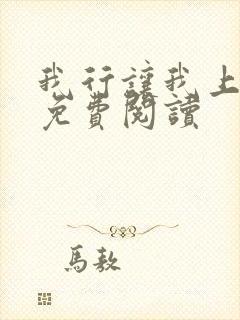 我行讓我上
免費閱讀
馬敖